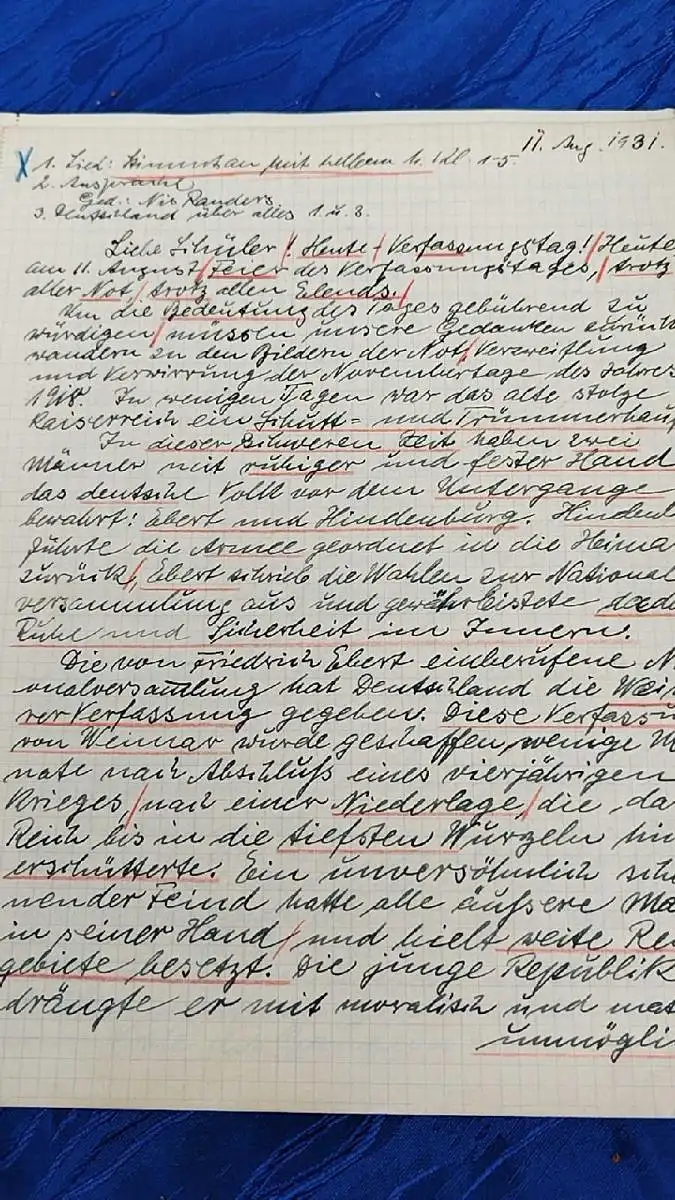 11. Aug. 1931.
1. Lied: 1-5.
2. Ansprache
Ged.: Nis Randers
3. Deutschland über alles 1. u. 3.
Liebe Schüler! Heute Verfassungstag! Heute
am 11. August Feier des Verfassungstages, trotz
aller Not, trotz allen Elends.
Um die Bedeutung des Tages gebührend zu
würdigen, müssen unsere Gedanken zurück
wandern zu den Bildern der Not, Verzweiflung
und Verwirrung der Novembertage des Jahres
1918. In wenigen Tagen war das alte stolze
Kaiserreich ein Schutt- und Trümmerhauf
In dieser schweren Zeit haben zwei
Männer mit ruhiger und fester Hand
das deutsche Volk vor dem Untergange
bewahrt: Ebert und Hindenburg. Hindenb
führte die Armee geordnet in die Heima
zurück, Ebert schrieb die Wahlen zur National
versammlung aus und gewährleistete
Ruhe und Sicherheit im Innern.
Die von Friedrich Ebert einberufene N
onalversammlung hat Deutschland die Wei
rer Verfassung gegeben. Diese Verfassu
von Weimar wurde geschaffen, wenige M
nate nach Abschluß eines vierjährigen
Krieges, nach einer Niederlage, die da
Reich bis in die tiefsten Wurzeln hin
erschütterte. Ein unversöhnlich schei
nender Feind hatte alle äußere Ma
in seiner Hand und hielt weite Rei
gebiete besetzt. Die junge Republik
drängte er mit moralisch und mat
unmögli